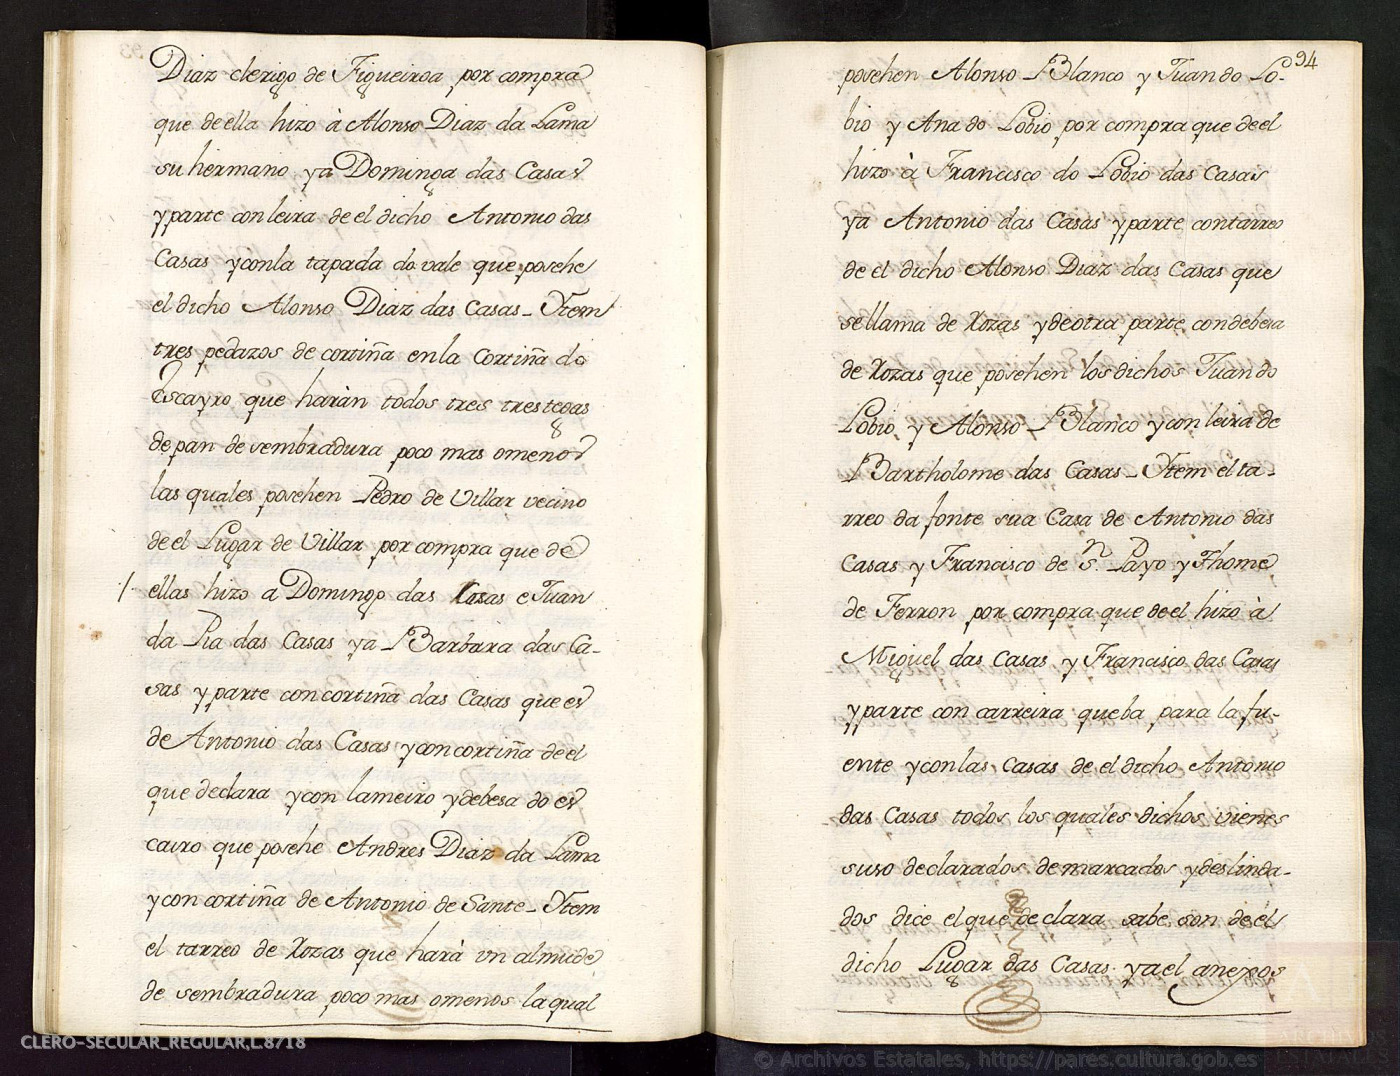 Diaz clerigo de Figueiroa por compra
que de ella hizo à Alonso Diaz da Lama
su hermano ya Dominga das Casas
y parte con leira de el dicho Antonio das
Casas y con la tapada do vale que posehe
el dicho Alonso Diaz das Casas - Ytem
tres pedazos de cortiña en la Cortiña do
Escayro que haràn todos tres tres tegas
de pan de sembradura poco mas o menos
las quales posehen Pedro de Villar vecino
de el Lugar de Villar por compra que de
ellas hizo a Domingo das Casas e Juan
da Pia das Casas ya Barbara das Ca-
sas y parte con cortiña das Casas que es
de Antonio das Casas y con cortiña de el
que declara y con lameiro y debesa do es
cairo que posehe Andres Diaz da Lama
y con cortiña de Antonio de Sante - Ytem
el tarreo de Xozas que harà un almude
de sembradura poco mas o menos la qual
94
posehen Alonso Blanco y Juan do Lo-
bio y Ana do Lobio por compra que de el
hizo à Francisco do Lobio das Casas
ya Antonio das Casas y parte con tarreo
de el dicho Alonso Diaz das Casas que
se llama de Xozas y de otra parte con debesa
de Xozas que posehen los dichos Juan do
Lobio y Alonso Blanco y con leira de
Bartholome das Casas - Ytem el ta-
rreo da fonte sua Casa de Antonio das
Casas y Francisco de Sn. Payo y Thome
de Ferron por compra que de el hizo à
Miguel das Casas y Francisco das Casas
y parte con carreira que ba para la fu-
ente y con las Casas de el dicho Antonio
das Casas todos los quales dichos vienes
suso declarados demarcados y deslinda-
dos dice el que declara sabe son de el
dicho Lugar das Casas y a el anexos
CLERO-SECULAR_REGULAR,L.8718
© Archivos Estatales, https://pares.cultura.gob.es